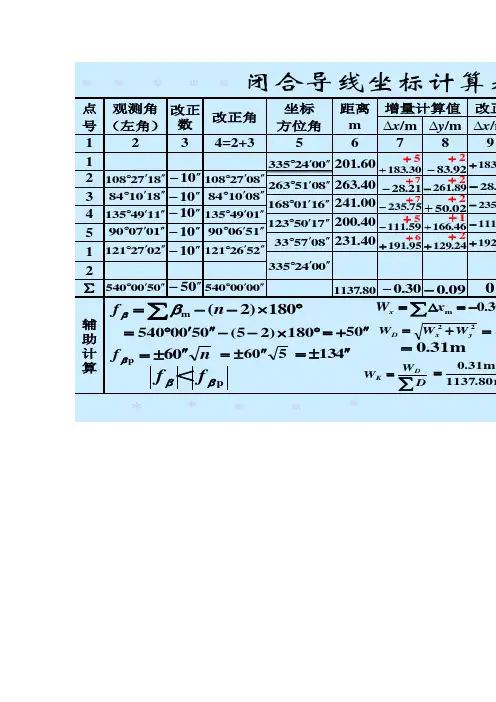 闭合导线坐标计算
点 观测角 改正 改正角 坐标 距离 增量计算值 改正
号 (左角) 数 方位角 m Δx/m Δy/m Δx/
1 2 3 4=2+3 5 6 7 8 9
1
335°24′00″ 201.60 +5 +183.30 +2 −83.92 +183
2 108°27′18″ −10″ 108°27′08″
263°51′08″ 263.40 +7 −28.21 +2 −261.89 −28.
3 84°10′18″ −10″ 84°10′08″
168°01′16″ 241.00 +7 −235.75 +2 +50.02 −235
4 135°49′11″ −10″ 135°49′01″
123°50′17″ 200.40 +5 −111.59 +1 +166.46 −111
5 90°07′01″ −10″ 90°06′51″
33°57′08″ 231.40 +6 +191.95 +2 +129.24 +192
1 121°27′02″ −10″ 121°26′52″
335°24′00″
2
Σ 540°00′50″ −50″ 540°00′00″ 1137.80 −0.30 −0.09 0
辅助计算
fβ = ∑βm −(n−2)×180°
=540°00′50″−(5−2)×180°=+50″
fβp = ±60″√n =±60″√5 =±134″
fβ < fβp
Wx = ∑Δxm = −0.3
WD = √(Wx² + Wy²) =
= 0.31m
WK = WD / ∑D = 0.31m / 1137.80